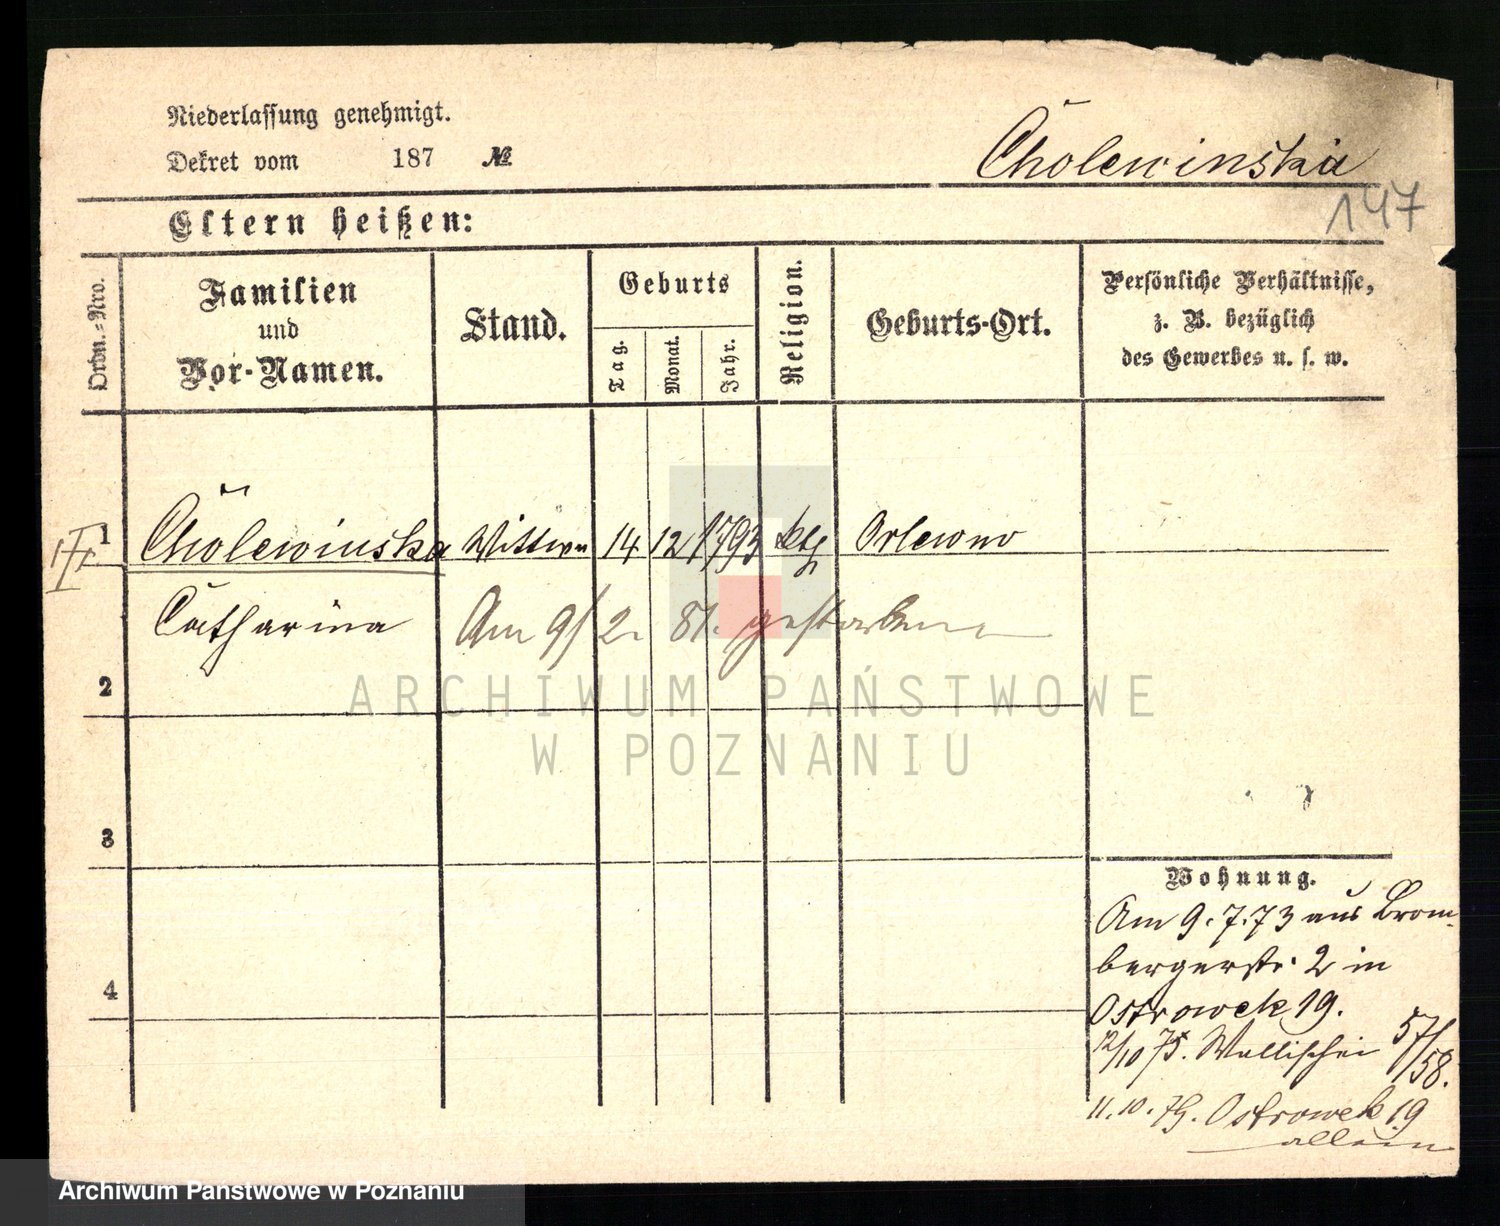 Niederlassung genehmigt.
Dekret vom 187 №
Cholewinska
147
Eltern heißen:
Ordn.=Nro.
Familien
und
Vor-Namen.
Stand.
Geburts
Tag.
Monat.
Jahr.
Religion.
Geburts-Ort.
Persönliche Verhältnisse,
z. B. bezüglich
des Gewerbes u. s. w.
1 Cholewinska Wittwe 14 12 1793 kth Orlewno
Catharina Am 9/2. 81. gestorben
2
ARCHIWUM PAŃSTWOWE
W POZNANIU
3
4
Wohnung.
Am 9.7.73 aus Brom-
bergerstr. 2 in
Ostrowek 19.
12/10 75. Wallischei 57/58.
11.10. Ostrowek 19
allein
Archiwum Panstwowe w Poznaniu